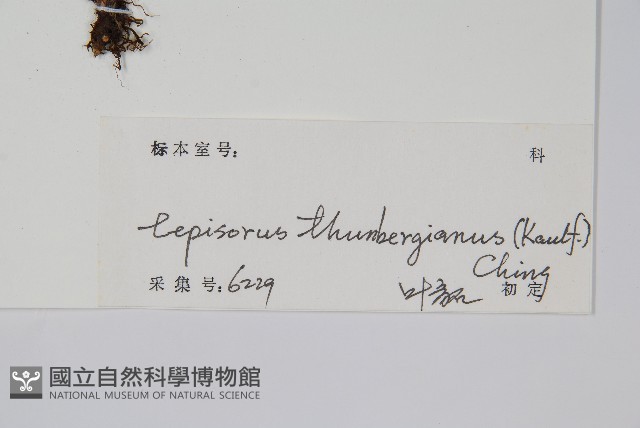 标本室号: 科
Lepisorus thunbergianus (Kaulf.)
Ching
采集号: 6229 初定
國立自然科學博物館
NATIONAL MUSEUM OF NATURAL SCIENCE